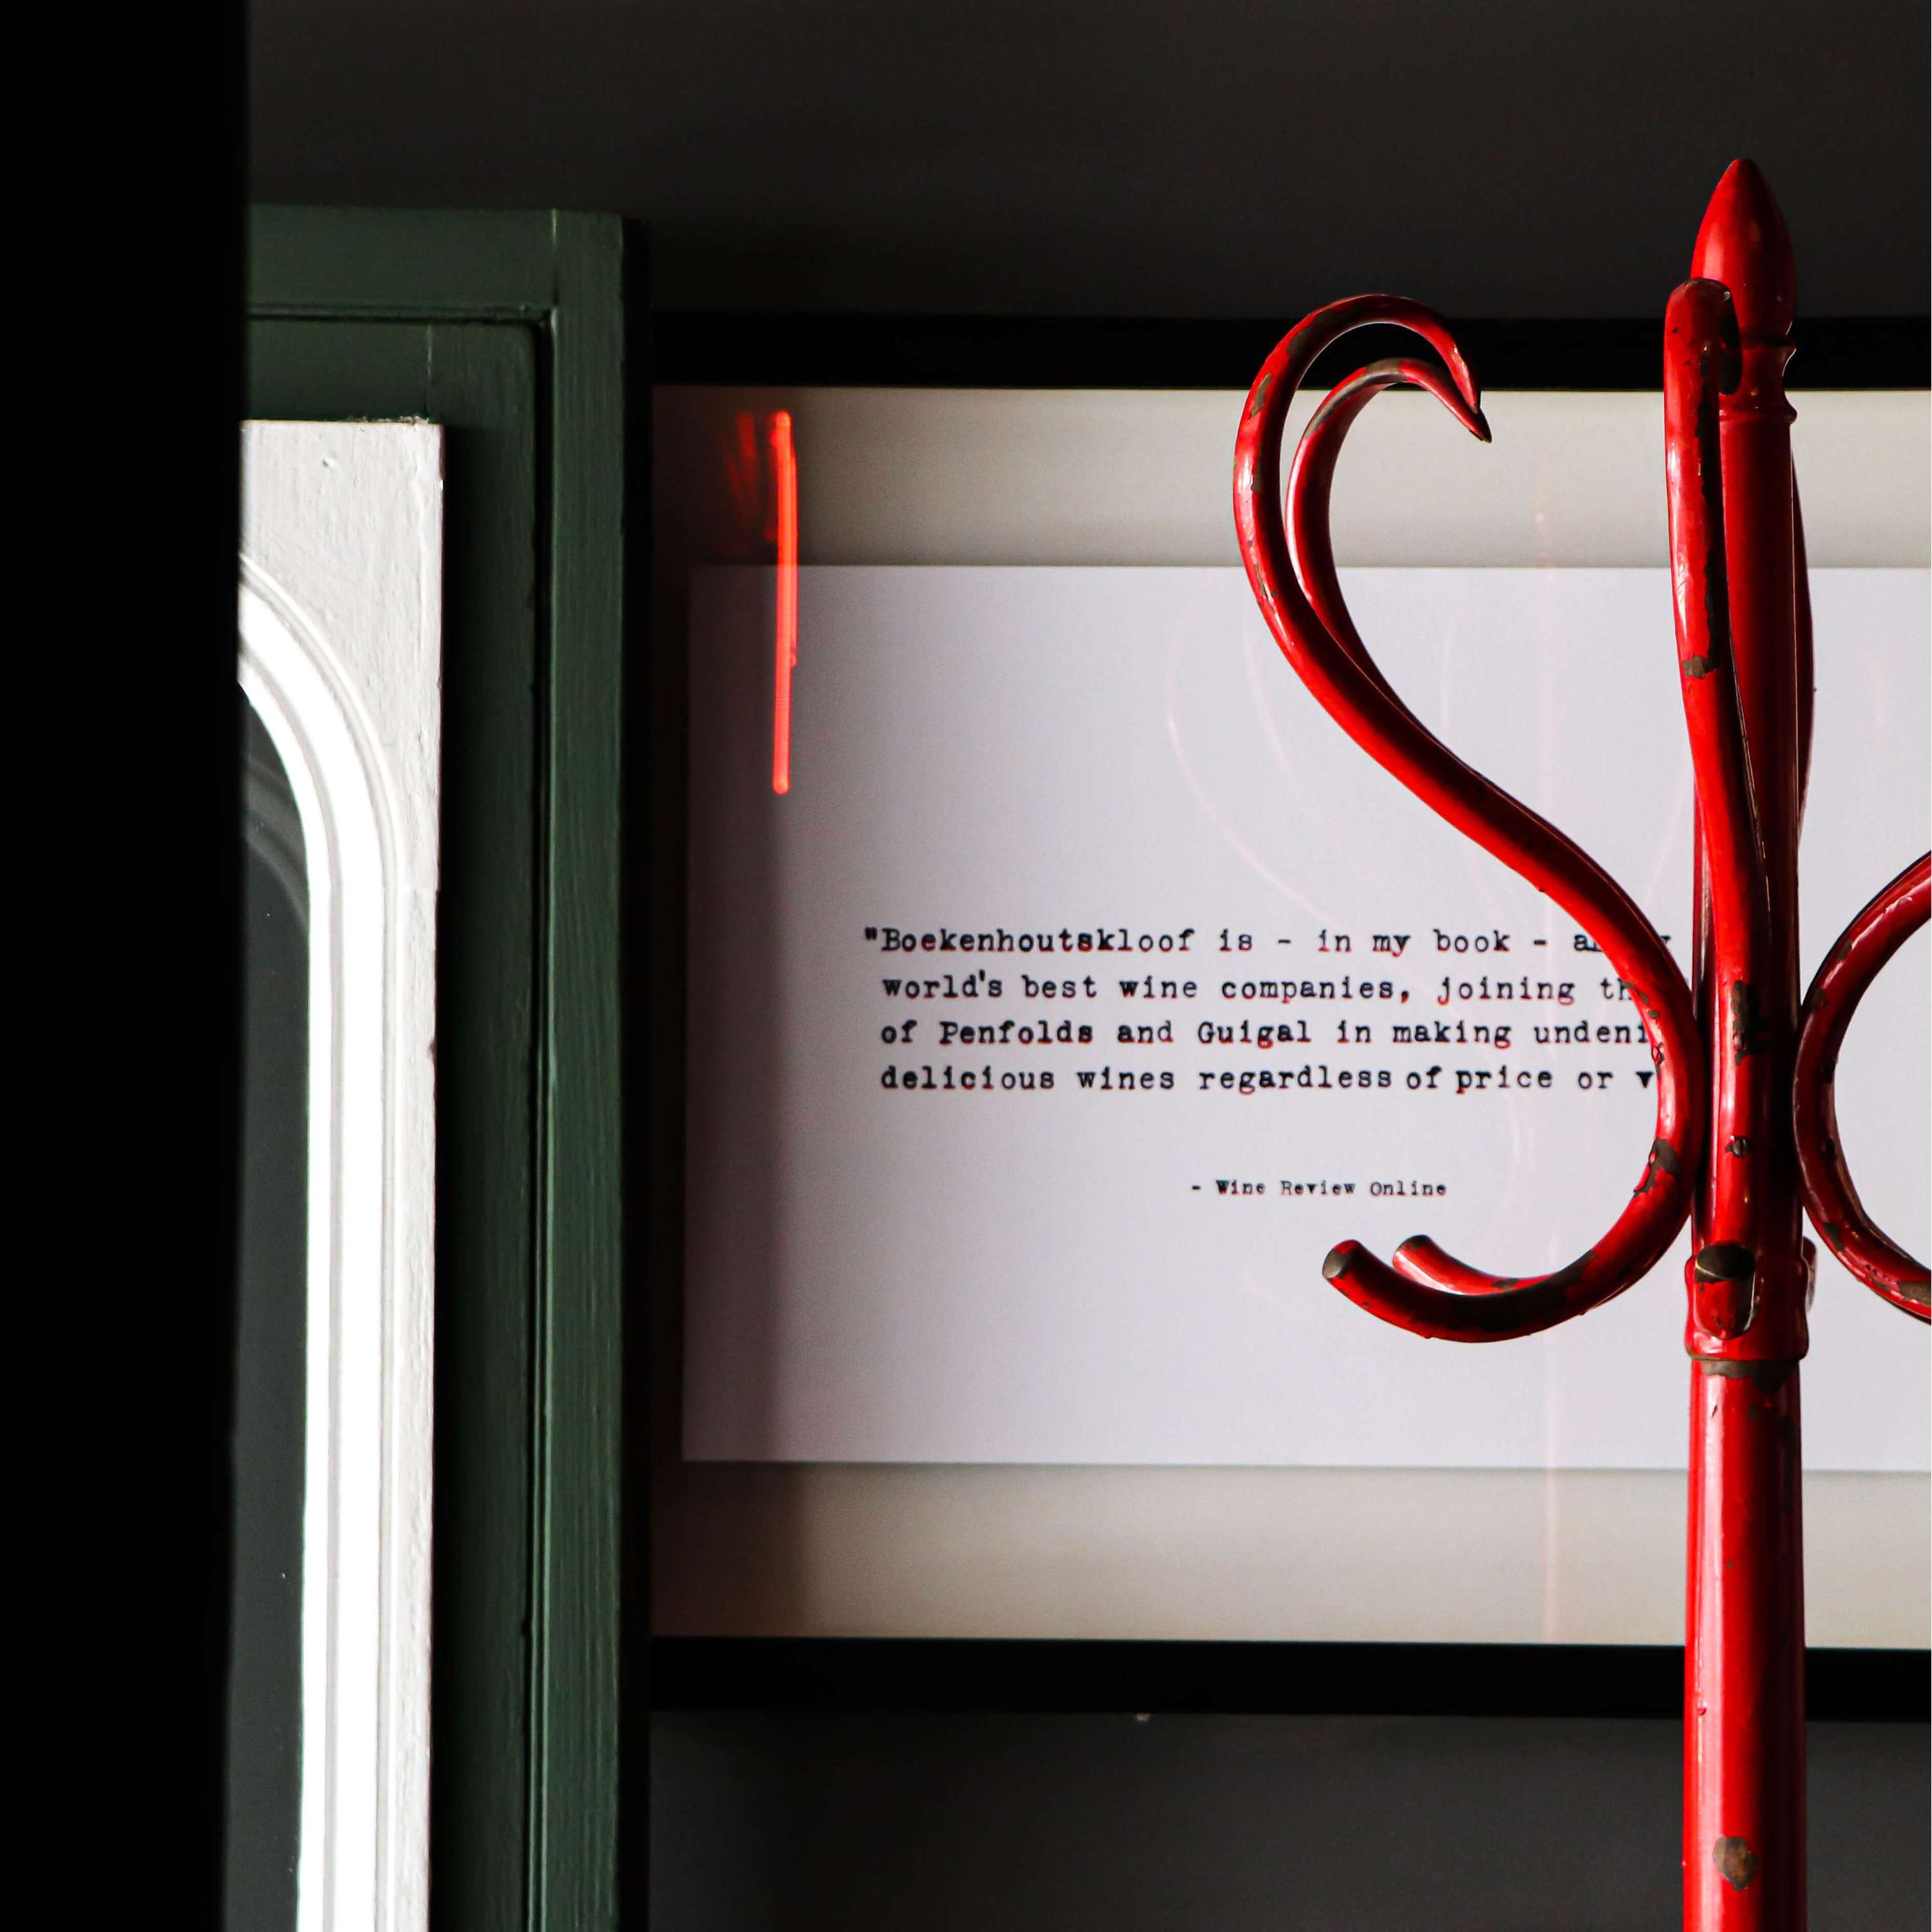 "Boekenhoutskloof is - in my book -
world's best wine companies, joining
of Penfolds and Guigal in making
delicious wines regardless of price or
- Wine Review Online